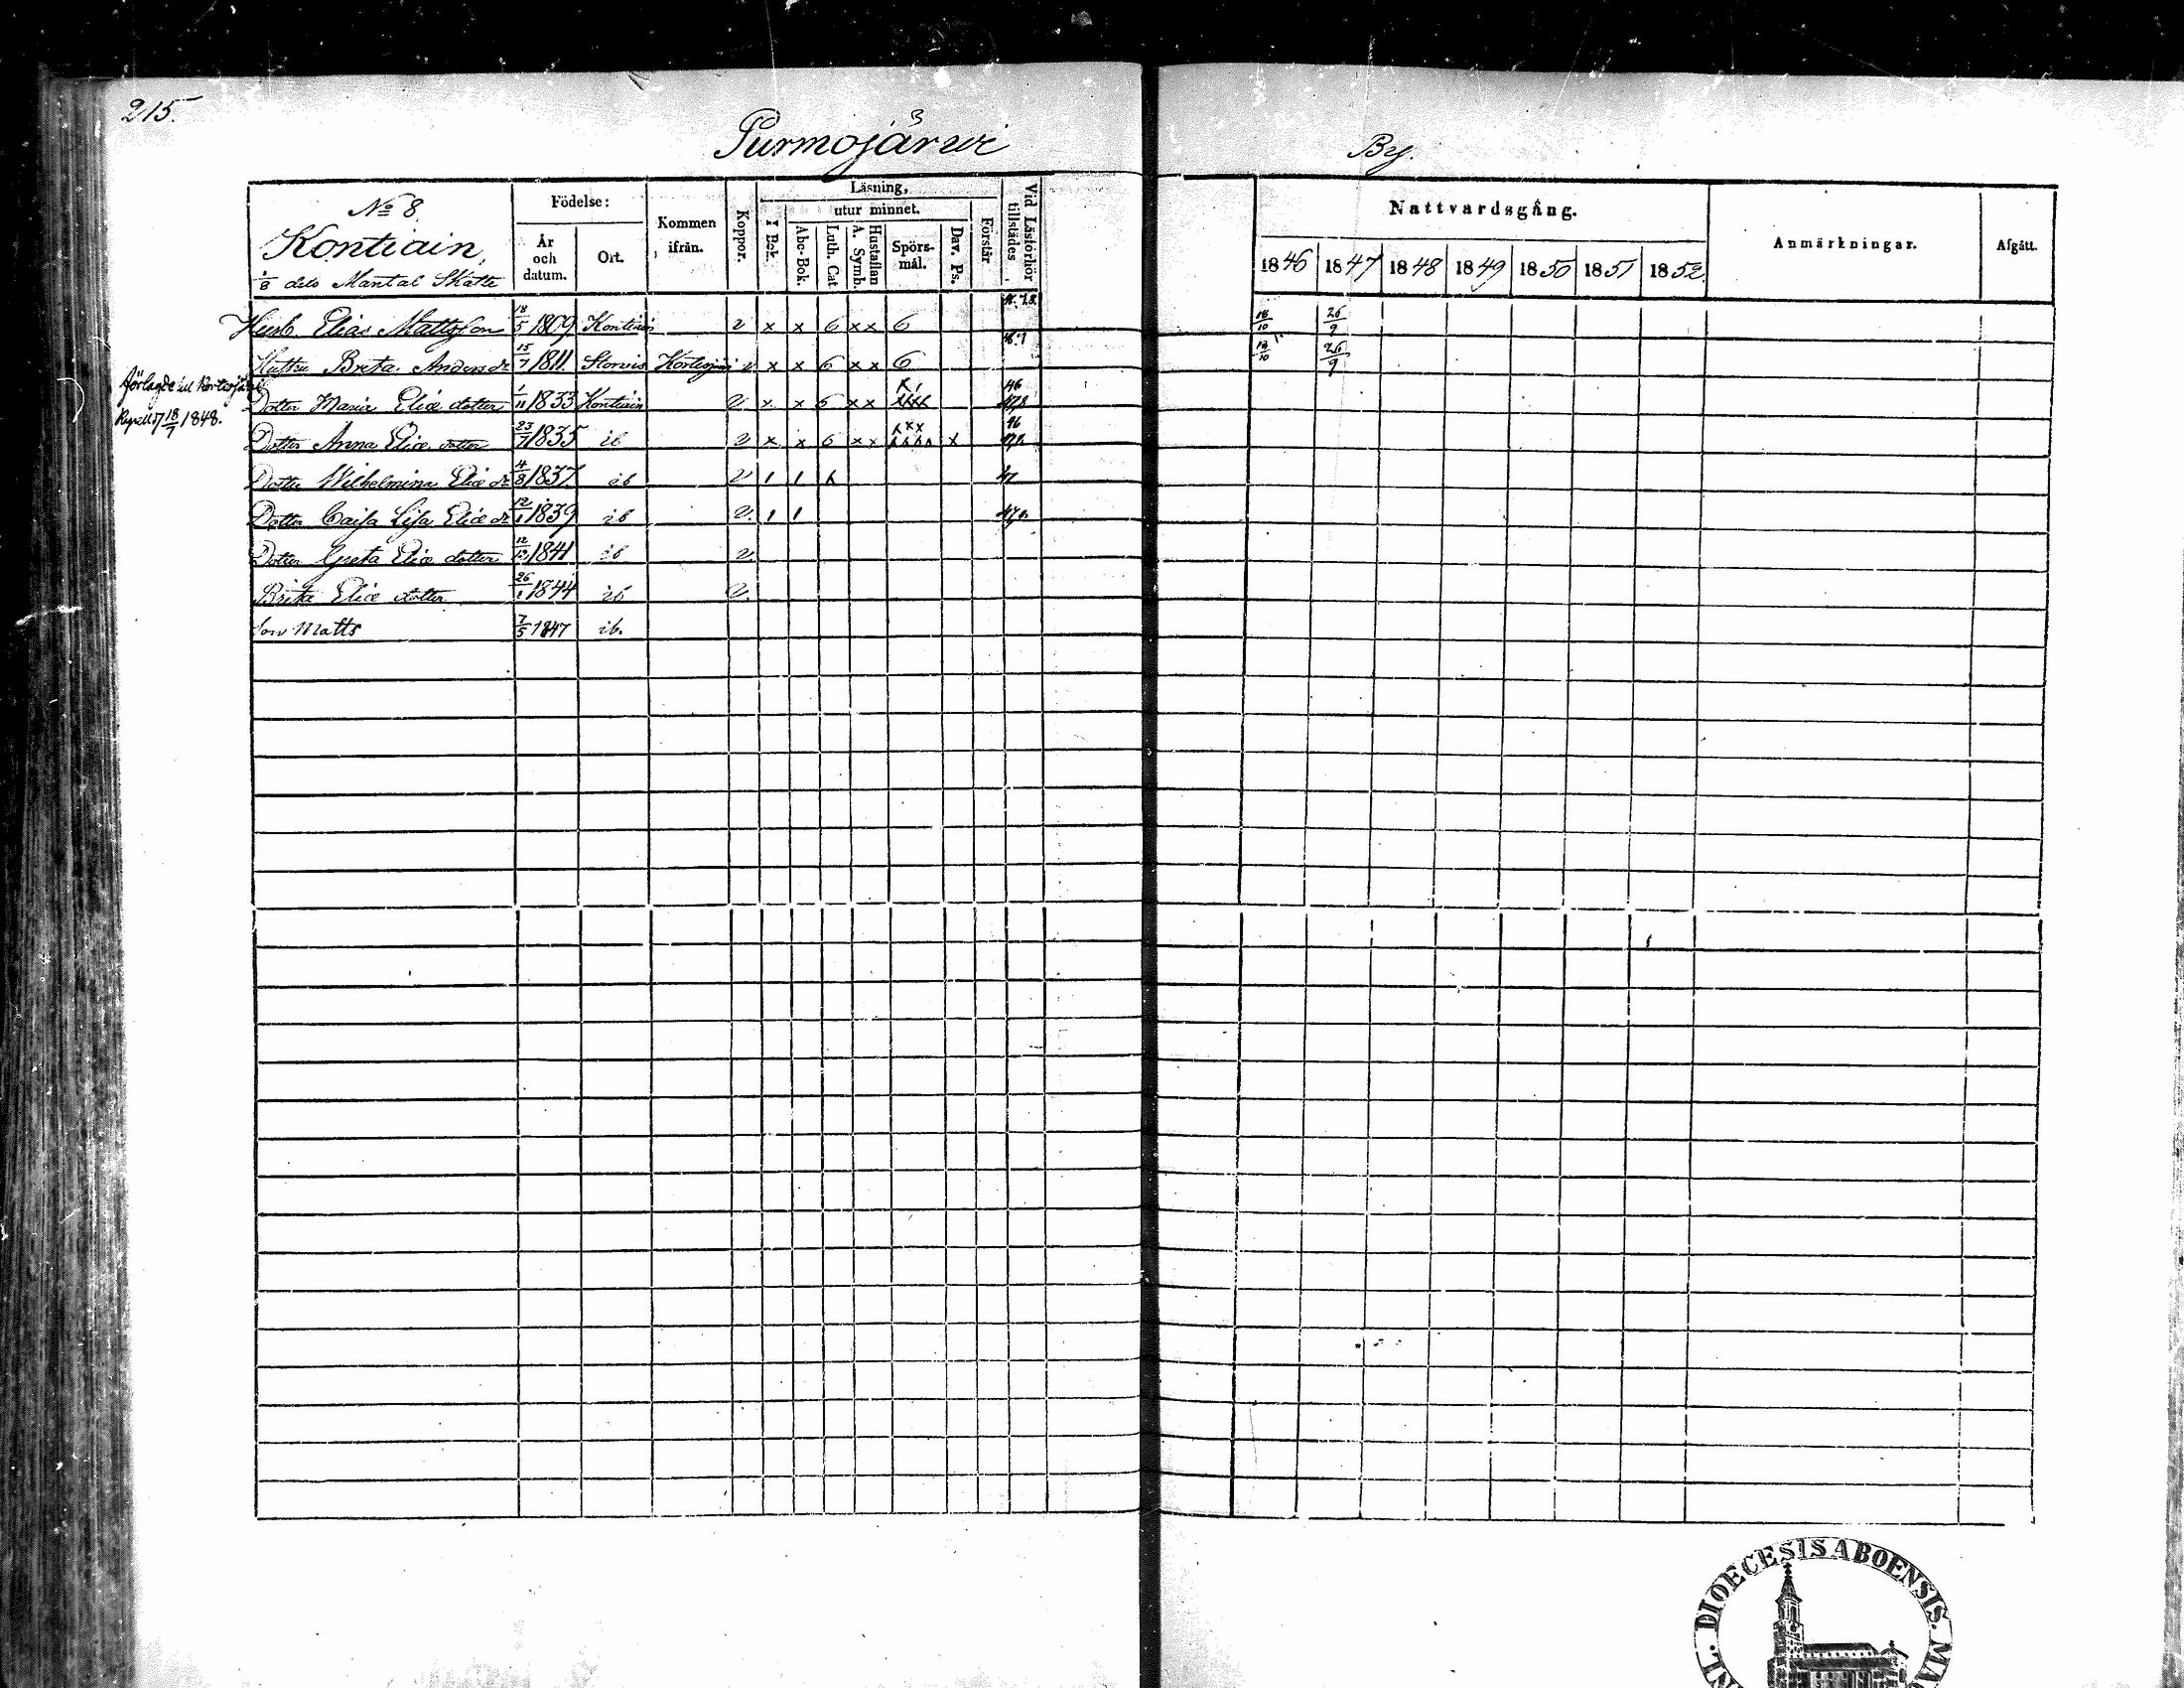 215.
Purmojärvi
By.
No 8.
Kontiain,
1/8 dels Mantal Skatte
Födelse:
År och datum.
Ort.
Kommen ifrån.
Koppor.
Läsning,
I Bok.
utur minnet.
Abc-Bok.
Luth. Cat
A. Symb.
Hustaflan
Spörs-mål.
Dav. Ps.
Förstår
Vid Läsförhör tillstädes
Nattvardsgång.
1846 1847 1848 1849 1850 1851 1852.
Anmärkningar.
Afgått.
Husb. Elias Mattsson 18/5 1809 Kontiain v x x 6 x x 6 18/10 26/9
Hustru Breta Anders dr 15/7 1811 Kortesjärvi v x x 6 x x 6 18/10 26/9
Dotter Maria Eliæ dotter 1/11 1833 Kontiain v x x 6 x x 46
Dotter Anna Eliæ dotter 23/7 1835 ib v x x 6 x x x 46
Dotter Wilhelmina Eliæ dr 4/8 1837 ib v 47
Dotter Caisa Lisa Eliæ dr 12/1 1839 ib v.
Dotter Greta Eliæ dotter 1841 ib v
Brita Eliæ dotter 26/1 1844 ib v.
Son Matts 7/5 1847 ib.
til Kortesjärvi
18/7 1848.
DIOECESIS ABOENSIS.